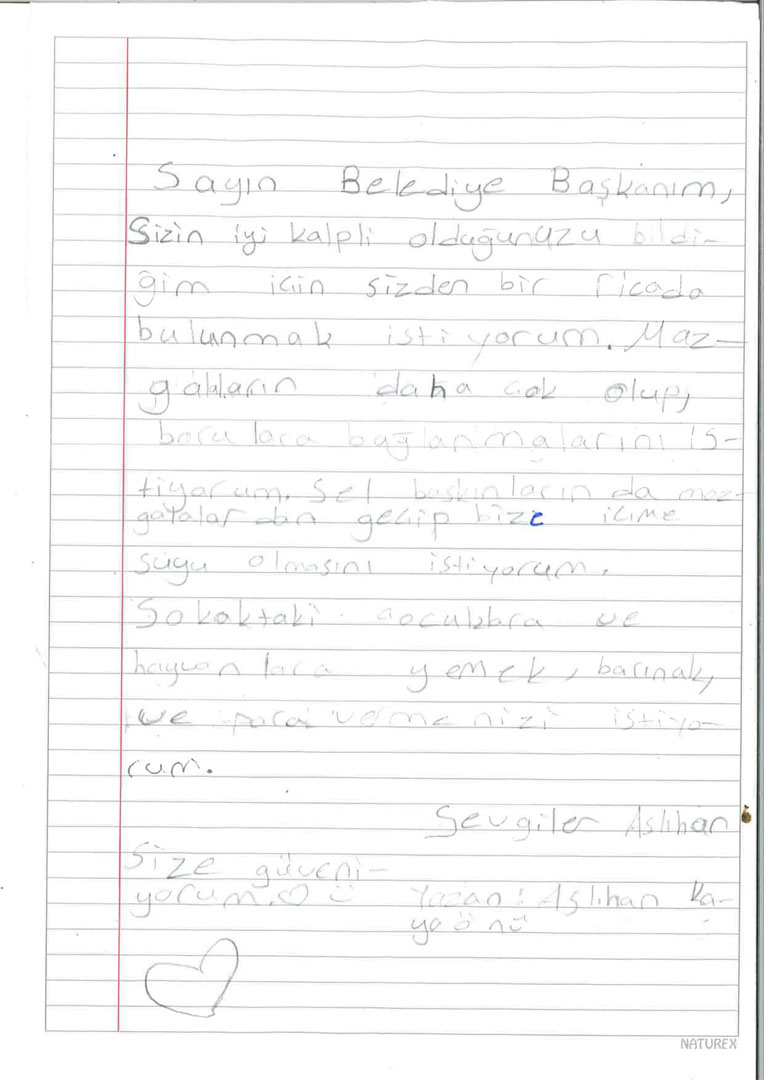 Sayın Belediye Başkanım,
Sizin iyi kalpli olduğunuzu bildi-
ğim için sizden bir ricada
bulunmak istiyorum. Maz-
galların daha çok olup,
borulara bağlanmalarını is-
tiyorum. Sel baskınların da maz-
galalardan geçip bize içime
suyu olmasını istiyorum.
Sokaktaki çocuklara ve
hayvanlara yemek, barınak,
ve para vermenizi istiyo-
rum.
Sevgiler Aslıhan
Size güveni-
yorum. Yazan: Aslıhan Ka-
yaönü
NATUREX